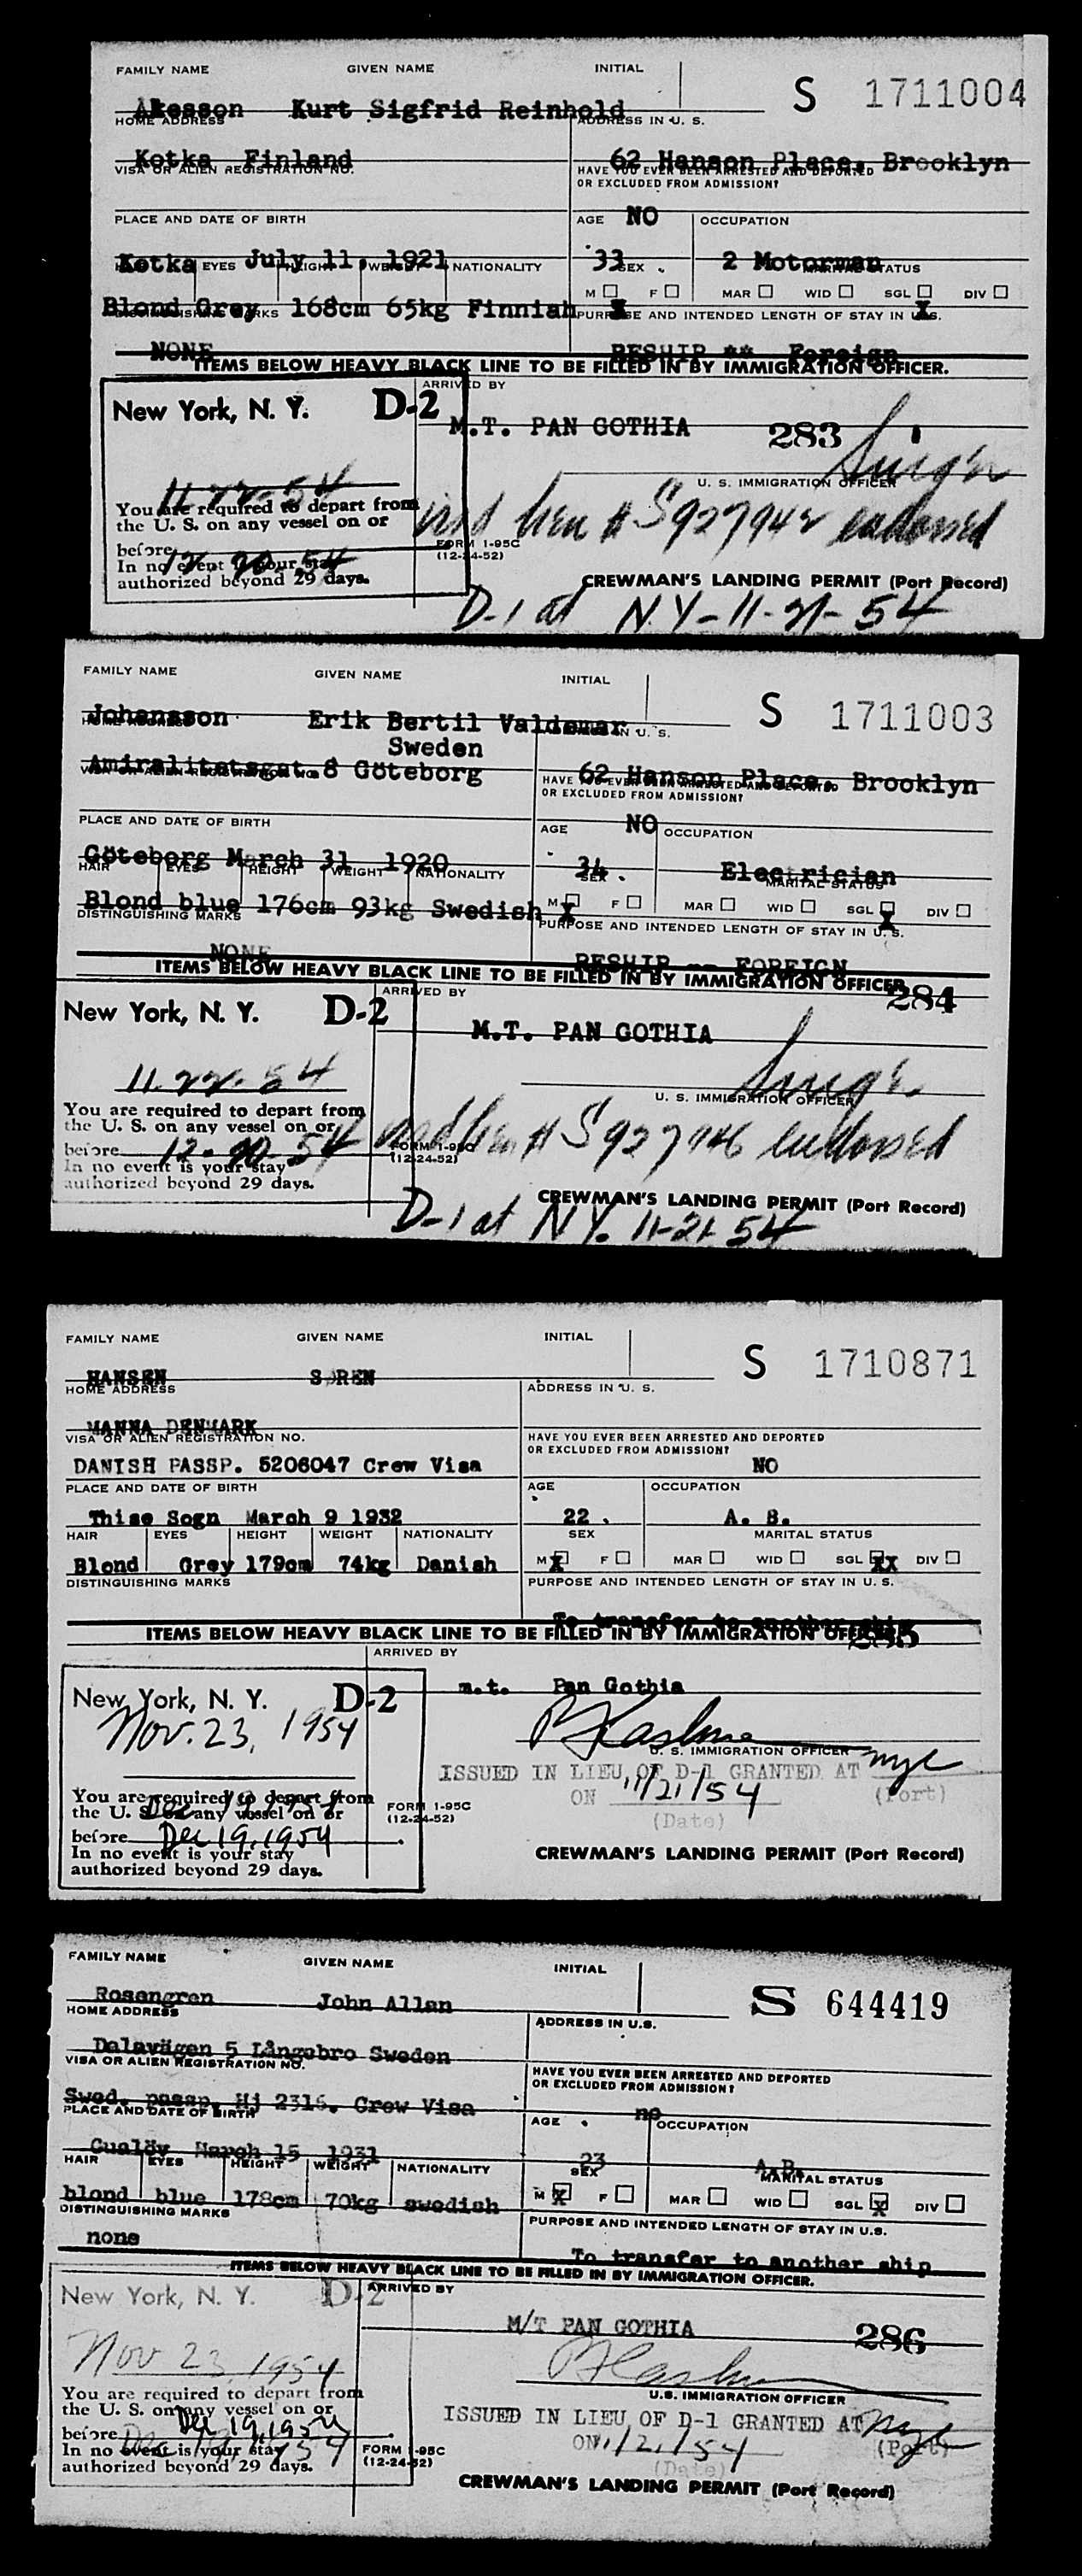 FAMILY NAME GIVEN NAME INITIAL
S 1711004
Akesson Kurt Sigfrid Reinhold
HOME ADDRESS ADDRESS IN U. S.
Kotka Finland 62 Hanson Place, Brooklyn
VISA OR ALIEN REGISTRATION NO. HAVE YOU EVER BEEN ARRESTED AND DEPORTED
OR EXCLUDED FROM ADMISSION?
NO
PLACE AND DATE OF BIRTH AGE OCCUPATION
Kotka July 11, 1921 33 2 Motorman
HAIR EYES HEIGHT WEIGHT NATIONALITY SEX MARITAL STATUS
M F MAR WID SGL DIV
Blond Grey 168cm 65kg Finnish X X
DISTINGUISHING MARKS PURPOSE AND INTENDED LENGTH OF STAY IN U.S.
NONE RESHIP ** Foreign
ITEMS BELOW HEAVY BLACK LINE TO BE FILLED IN BY IMMIGRATION OFFICER.
New York, N. Y. D-2 ARRIVED BY
M.T. PAN GOTHIA 283
11-22-54
U. S. IMMIGRATION OFFICER
You are required to depart from
the U. S. on any vessel on or
before 12-20-54
# S927942 endorsed
FORM I-95C
(12-24-52)
In no event is your stay
authorized beyond 29 days.
CREWMAN'S LANDING PERMIT (Port Record)
D-1 at N.Y-11-21-54
FAMILY NAME GIVEN NAME INITIAL
S 1711003
Johansson Erik Bertil Valdemar
HOME ADDRESS ADDRESS IN U. S.
Sweden
Amiralitetsgat.8 Göteborg 62 Hanson Place, Brooklyn
VISA OR ALIEN REGISTRATION NO. HAVE YOU EVER BEEN ARRESTED AND DEPORTED
OR EXCLUDED FROM ADMISSION?
NO
PLACE AND DATE OF BIRTH AGE OCCUPATION
Göteborg March 31 1920 34 Electrician
HAIR EYES HEIGHT WEIGHT NATIONALITY SEX MARITAL STATUS
M F MAR WID SGL DIV
Blond blue 176cm 93kg Swedish X X
DISTINGUISHING MARKS PURPOSE AND INTENDED LENGTH OF STAY IN U. S.
NONE RESHIP -- FOREIGN
ITEMS BELOW HEAVY BLACK LINE TO BE FILLED IN BY IMMIGRATION OFFICER.
284
New York, N. Y. D-2 ARRIVED BY
M.T. PAN GOTHIA
11-22-54
U. S. IMMIGRATION OFFICER
You are required to depart from
the U. S. on any vessel on or
before 12-20-54
# S927946 endorsed
FORM I-95C
(12-24-52)
In no event is your stay
authorized beyond 29 days.
CREWMAN'S LANDING PERMIT (Port Record)
D-1 at N.Y. 11-21-54
FAMILY NAME GIVEN NAME INITIAL
S 1710871
HANSEN SØREN
HOME ADDRESS ADDRESS IN U. S.
MANNA DENMARK
VISA OR ALIEN REGISTRATION NO. HAVE YOU EVER BEEN ARRESTED AND DEPORTED
OR EXCLUDED FROM ADMISSION?
DANISH PASSP. 5206047 Crew Visa NO
PLACE AND DATE OF BIRTH AGE OCCUPATION
Thise Sogn March 9 1932 22 A. B.
HAIR EYES HEIGHT WEIGHT NATIONALITY SEX MARITAL STATUS
Blond Grey 179cm 74kg Danish M X F MAR WID SGL XX DIV
DISTINGUISHING MARKS PURPOSE AND INTENDED LENGTH OF STAY IN U. S.
To transfer to another ship
ITEMS BELOW HEAVY BLACK LINE TO BE FILLED IN BY IMMIGRATION OFFICER
285
ARRIVED BY
New York, N. Y. D-2 m.t. Pan Gothia
Nov. 23, 1954
U. S. IMMIGRATION OFFICER
ISSUED IN LIEU OF D-1 GRANTED AT nyc
ON 11/21/54 (Port)
(Date)
You are required to depart from
the U. S. on any vessel on or
before Dec 19, 1954
FORM I-95C
(12-24-52)
In no event is your stay
authorized beyond 29 days.
CREWMAN'S LANDING PERMIT (Port Record)
FAMILY NAME GIVEN NAME INITIAL
S 644419
Rosengren John Allan
HOME ADDRESS ADDRESS IN U.S.
Dalavägen 5 Långebro Sweden
VISA OR ALIEN REGISTRATION NO. HAVE YOU EVER BEEN ARRESTED AND DEPORTED
OR EXCLUDED FROM ADMISSION?
Swed. passp. Hj 2316. Crew Visa no
PLACE AND DATE OF BIRTH AGE OCCUPATION
Gualöv March 15 1931 23 A.B.
HAIR EYES HEIGHT WEIGHT NATIONALITY SEX MARITAL STATUS
blond blue 178cm 70kg swedish M X F MAR WID SGL X DIV
DISTINGUISHING MARKS PURPOSE AND INTENDED LENGTH OF STAY IN U.S.
none To transfer to another ship
ITEMS BELOW HEAVY BLACK LINE TO BE FILLED IN BY IMMIGRATION OFFICER.
New York, N. Y. D-2 ARRIVED BY
M/T PAN GOTHIA 286
Nov 23, 1954
U.S. IMMIGRATION OFFICER
ISSUED IN LIEU OF D-1 GRANTED AT nyc
ON 11/21/54 (Port)
(Date)
You are required to depart from
the U. S. on any vessel on or
before Dec 19, 1954
In no event is your stay
authorized beyond 29 days.
FORM I-95C
(12-24-52)
CREWMAN'S LANDING PERMIT (Port Record)